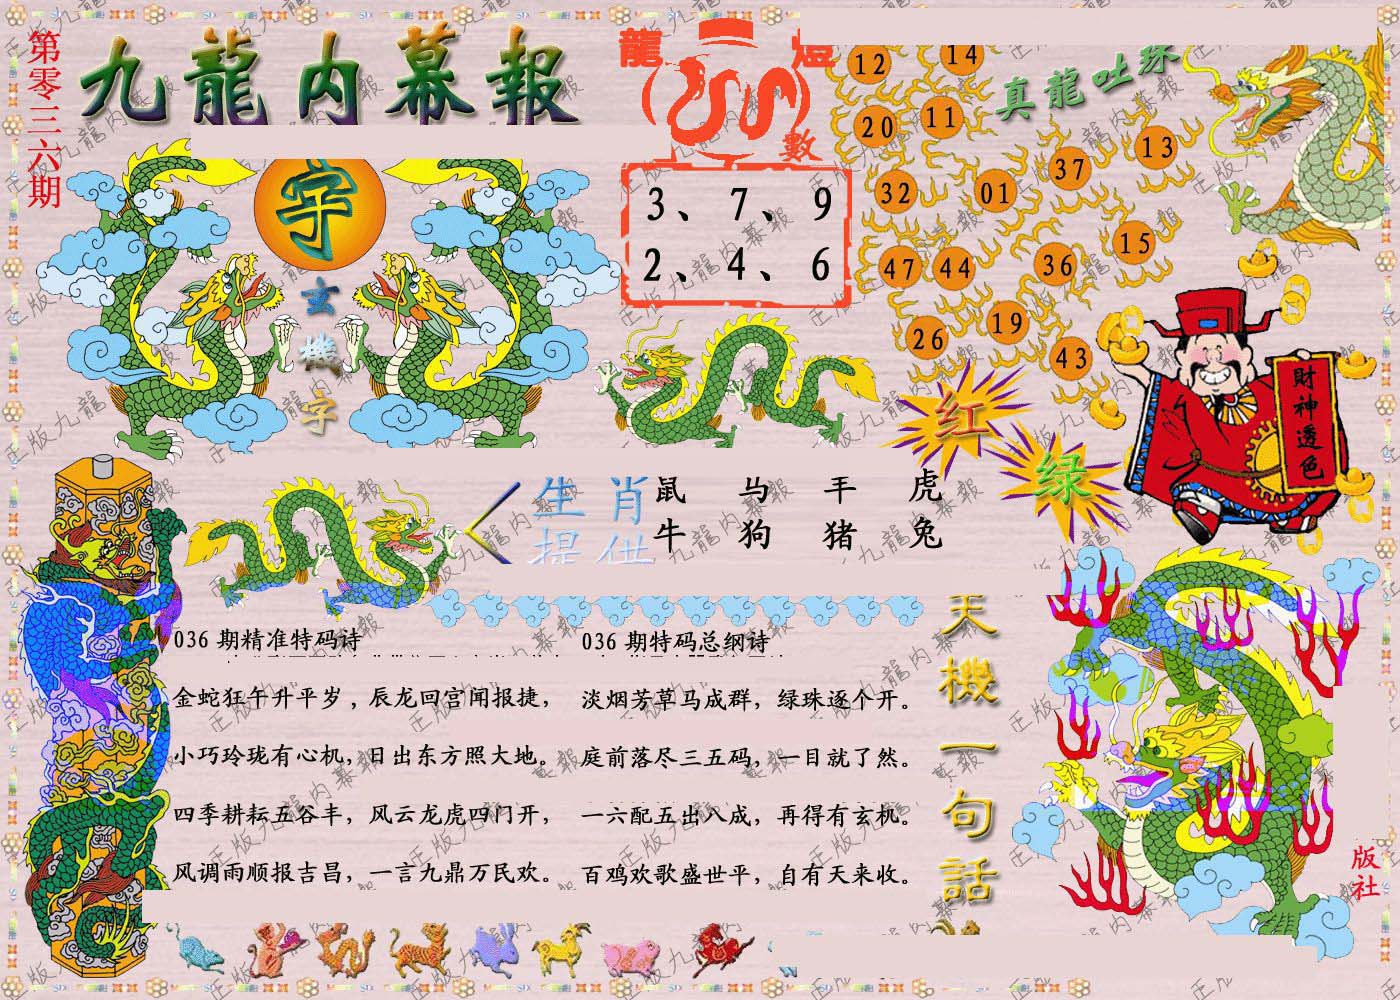 第零三六期
九龍内幕報
字
玄機字
龍
數
3、7、9
2、4、6
真龍吐珠
12 14
20 11
37 13
32 01
15
47 44 36
26 19
43
红
绿
財神透色
生肖
提供
鼠 马 羊 虎
牛 狗 猪 兔
036 期精准特码诗
金蛇狂午升平岁,辰龙回宫闻报捷,
小巧玲珑有心机,日出东方照大地。
四季耕耘五谷丰,风云龙虎四门开,
风调雨顺报吉昌,一言九鼎万民欢。
036 期特码总纲诗
淡烟芳草马成群,绿珠逐个开。
庭前落尽三五码,一目就了然。
一六配五出八成,再得有玄机。
百鸡欢歌盛世平,自有天来收。
天機一句話
版社
正版九龍内幕報